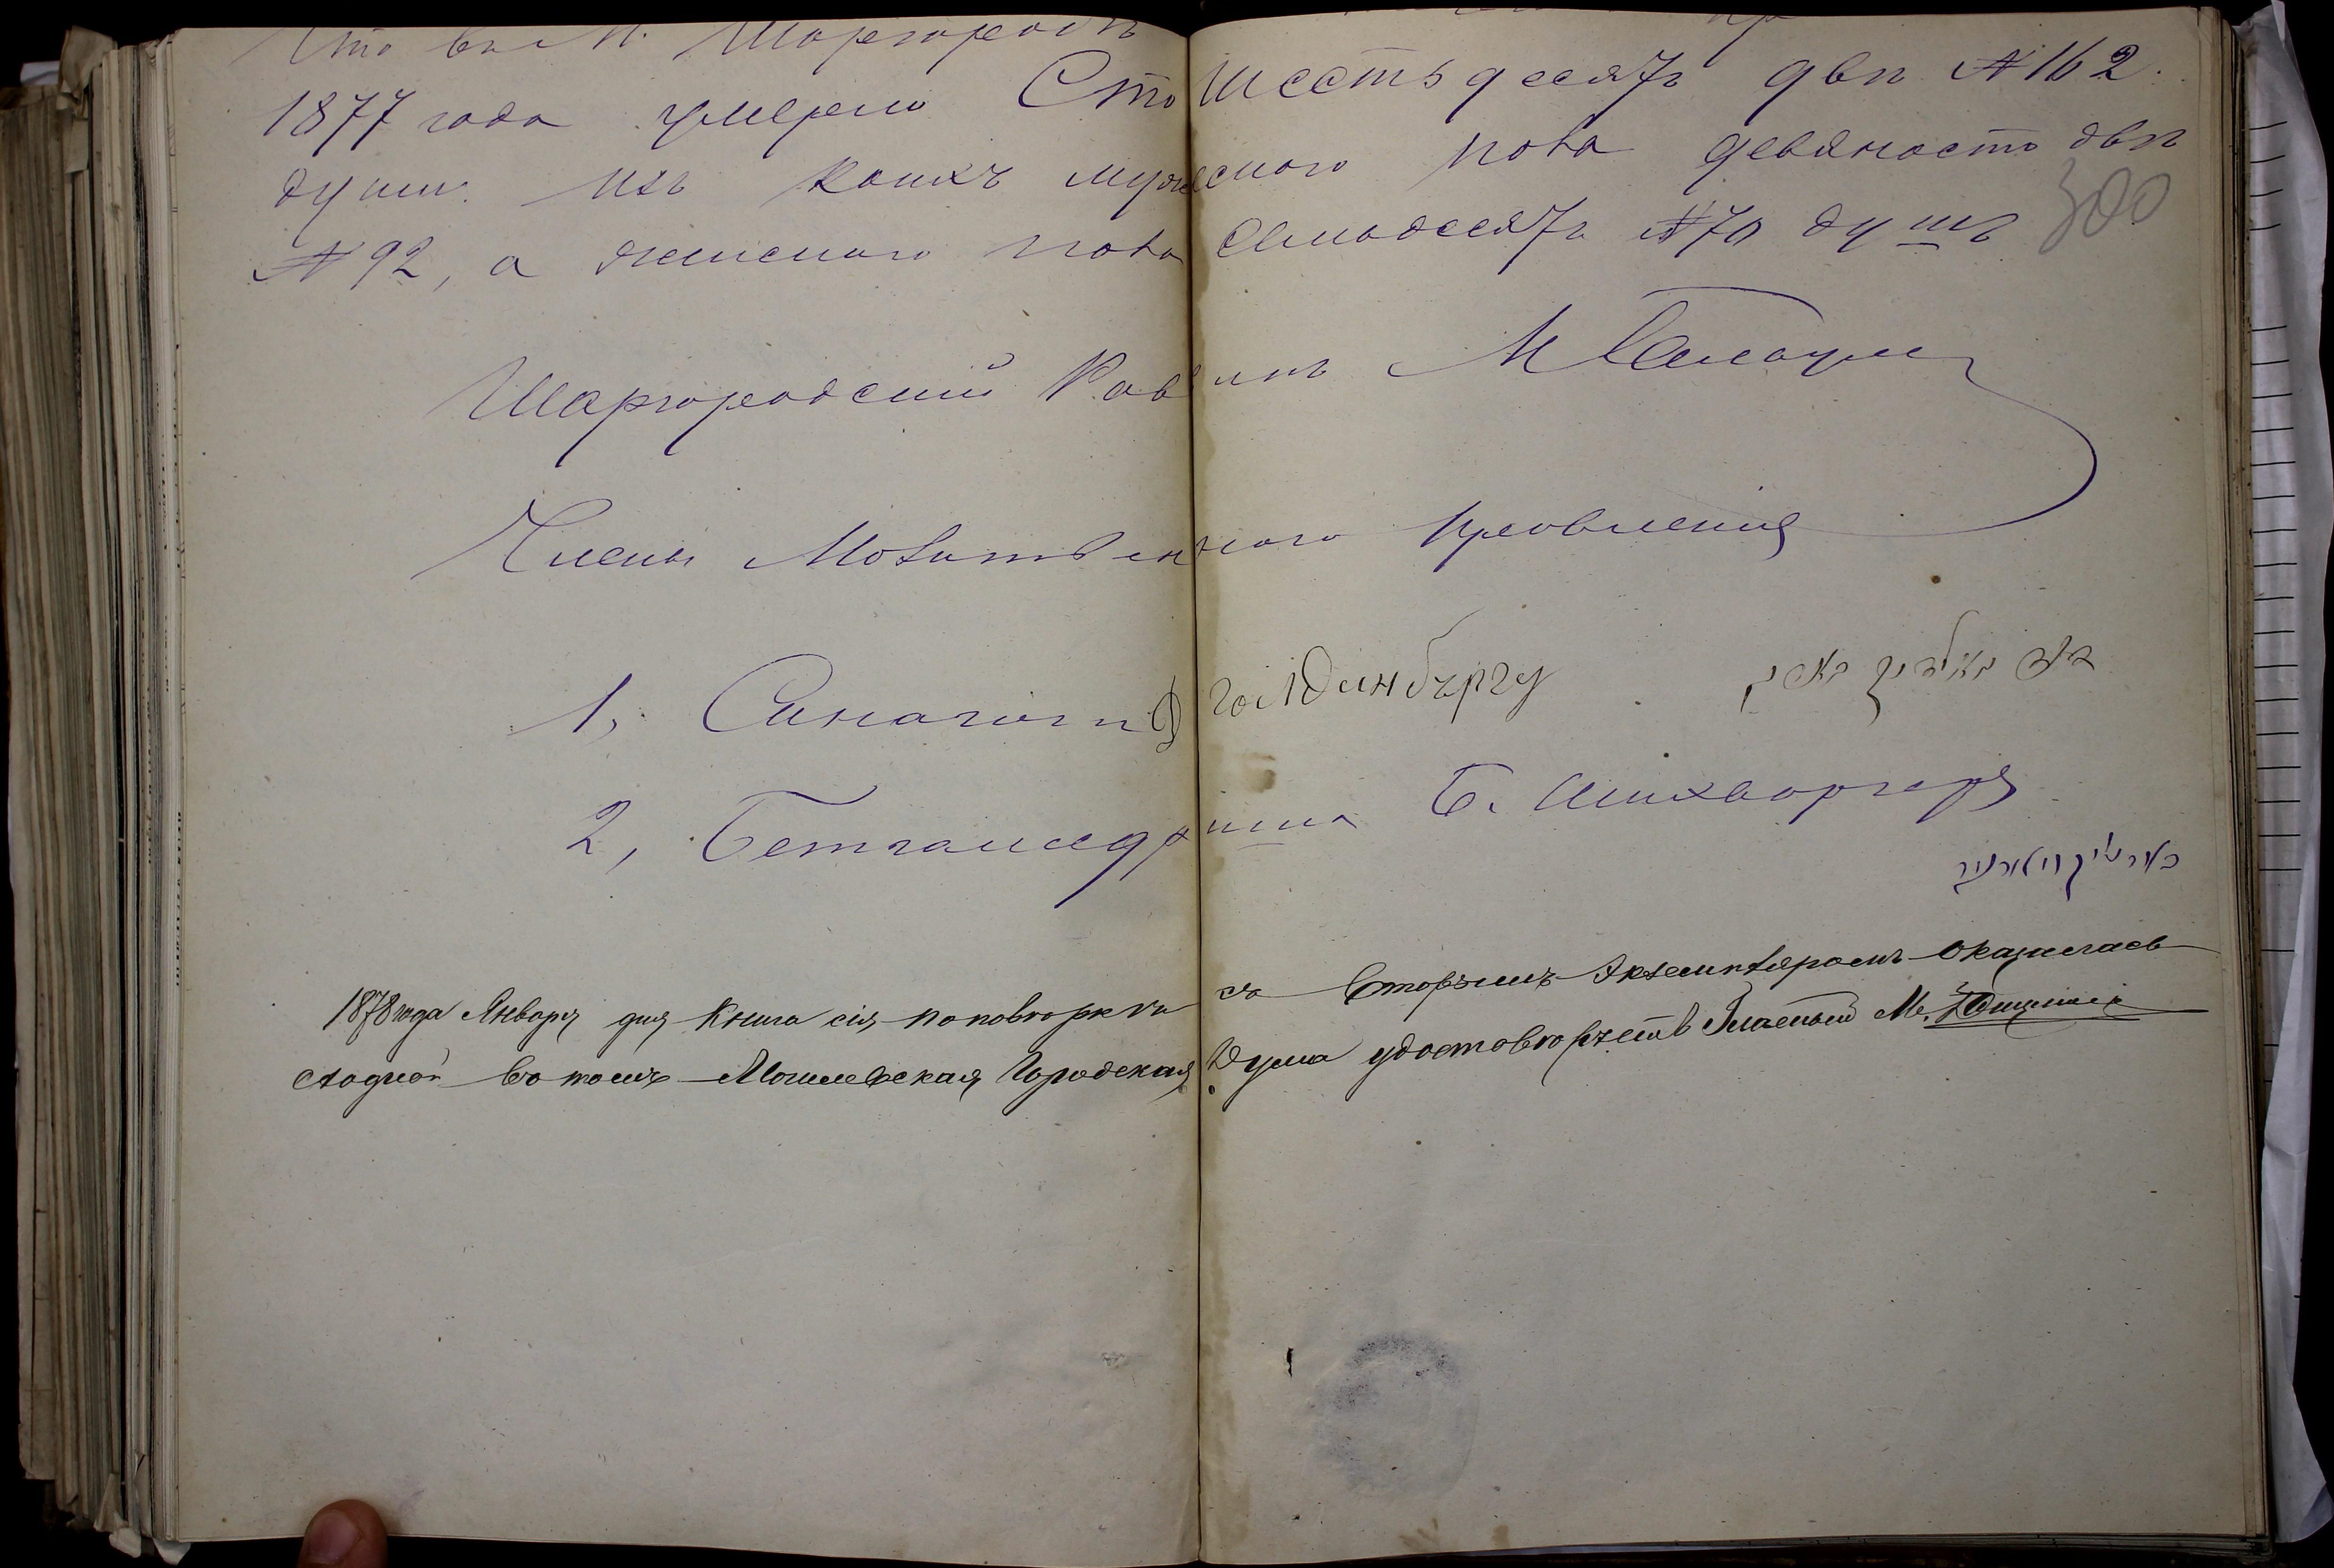 Что въ М. Шаргородѣ
1877 года умерло Сто Шестьдесятъ двѣ № 162.
душъ. Изъ коихъ мужескаго пола девяносто двѣ
№ 92, а женскаго пола Семьдесятъ № 70 душъ
300
Шаргородскій Равинъ М
Члены Молитвеннаго Правленія
1, Синагоги Д Голдинбергу
2, Бетгамедраша Б.
1878 года Января дня Книга сія по повѣркѣ съ Вторымъ Экземпляромъ оказалась
сходной въ томъ Могилевская Городская Дума удостовѣряетъ Гласный М.